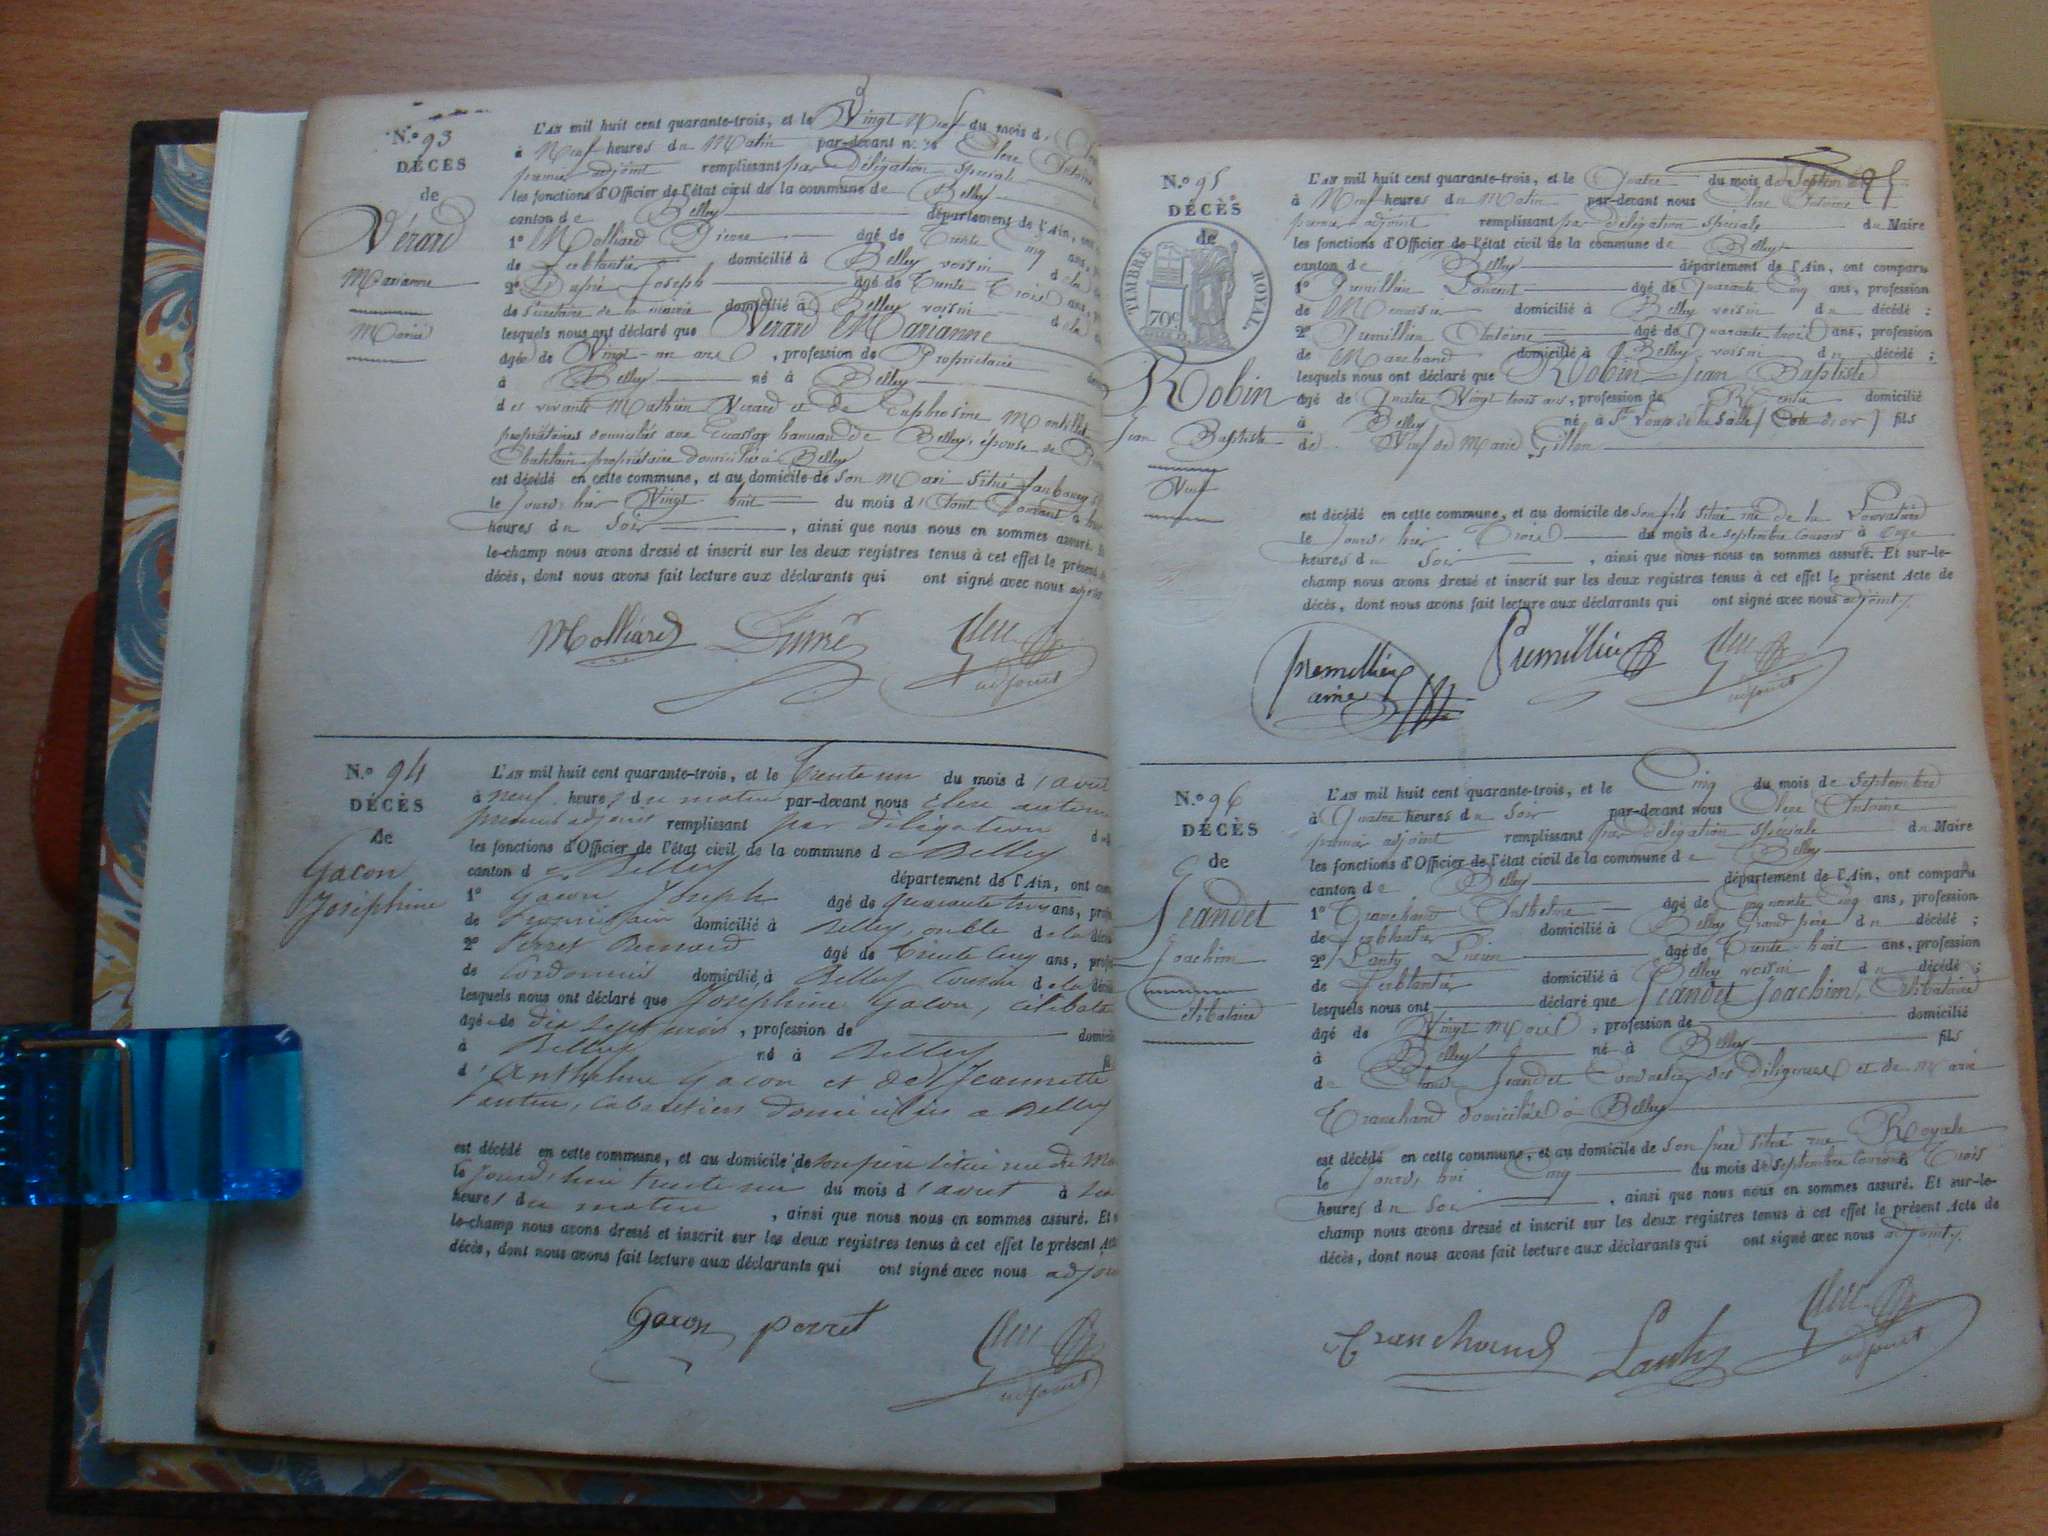 N.° 93
DÉCÈS
de
Vérard
Marianne
Mariée
L'AN mil huit cent quarante-trois, et le Vingt Neuf du mois d'
à Neuf heures du Matin par-devant nous Clerc Antoine
premier adjoint remplissant par délégation spéciale
les fonctions d'Officier de l'état civil de la commune de Belley
canton de Belley département de l'Ain, ont
1° Molliard Pierre âgé de Trente Cinq ans,
de Ferblantier domicilié à Belley voisin de la
2° Joseph âgé de Trente Trois ans,
de Secrétaire de la mairie domicilié à Belley voisin de la
lesquels nous ont déclaré que Vérard Marianne
âgée de Vingt un ans, profession de Propriétaire
à Belley né à Belley
des vivants Mathieu Verard et de Euphrosine
propriétaires domiciliés aux hameau de Belley, épouse de
Chatelain propriétaire domicilié à Belley
est décédé en cette commune, et au domicile de son Mari situé faubourg
le jourd'hier Vingt huit du mois d'Aout Courant à
heures du Soir, ainsi que nous nous en sommes assuré. Et
le-champ nous avons dressé et inscrit sur les deux registres tenus à cet effet le présent
décès, dont nous avons fait lecture aux déclarants qui ont signé avec nous adjoint
Molliard
adjoint
N.° 94
DÉCÈS
de
Gacon
Joséphine
L'AN mil huit cent quarante-trois, et le Trente un du mois d'aout
à neuf heures du matin par-devant nous Clerc antoine
premier adjoint remplissant par délégation
les fonctions d'Officier de l'état civil de la commune de Belley
canton de Belley département de l'Ain, ont
1° Gacon Joseph âgé de quarante trois ans,
de domicilié à Belley, oncle de la
2° Perret Bernard âgé de Trente Cinq ans,
de Cordonnier domicilié à Belley Cousin de la
lesquels nous ont déclaré que Joséphine Gacon, célibataire
âgée de dix sept mois, profession de
à Belley né à Belley
d'Anthelme Gacon et de Jeannette
cabaretiers domiciliés a Belley
est décédé en cette commune, et au domicile de son père situé rue du
le jourd'hui trente un du mois d'aout à
heures du matin, ainsi que nous nous en sommes assuré. Et
le-champ nous avons dressé et inscrit sur les deux registres tenus à cet effet le présent
décès, dont nous avons fait lecture aux déclarants qui ont signé avec nous adjoint
Gacon perret
adjoint
N.° 95
DÉCÈS
de
TIMBRE ROYAL
70c
Robin
Jean Baptiste
Veuf
L'AN mil huit cent quarante-trois, et le Quatre du mois de Septembre
à Neuf heures du Matin par-devant nous Clerc Antoine
premier adjoint remplissant par délégation spéciale du Maire
les fonctions d'Officier de l'état civil de la commune de Belley
canton de Belley département de l'Ain, ont comparu
1° Premillieu Laurent âgé de Quarante Cinq ans, profession
de Menuisier domicilié à Belley voisin du décédé ;
2° Premillieu Antoine âgé de Quarante trois ans, profession
de Marchand domicilié à Belley voisin du décédé ;
lesquels nous ont déclaré que Robin Jean Baptiste
âgé de Quatre Vingt trois ans, profession de Rentier domicilié
à Belley né à St Loup de la Salle (Cote d'or) fils
de Veuf de Marie Gillon
est décédé en cette commune, et au domicile de son fils situé rue de la
le jourd'hier Trois du mois de septembre courant à Onze
heures du Soir, ainsi que nous nous en sommes assuré. Et sur-le-
champ nous avons dressé et inscrit sur les deux registres tenus à cet effet le présent Acte de
décès, dont nous avons fait lecture aux déclarants qui ont signé avec nous adjoint.
premillieu Premillieu
ainé
adjoint
N.° 96
DÉCÈS
de
Jeandet
Joachim
Célibataire
L'AN mil huit cent quarante-trois, et le Cinq du mois de Septembre
à Quatre heures du Soir par-devant nous Clerc Antoine
premier adjoint remplissant par délégation spéciale du Maire
les fonctions d'Officier de l'état civil de la commune de Belley
canton de Belley département de l'Ain, ont comparu
1° Tranchand Anthelme âgé de Cinquante Cinq ans, profession
de Ferblantier domicilié à Belley Grand père du décédé ;
2° Lanty Lucien âgé de Trente huit ans, profession
de Ferblantier domicilié à Belley voisin du décédé ;
lesquels nous ont déclaré que Jeandet Joachim, Célibataire
âgé de Vingt Mois, profession de domicilié
à Belley né à Belley fils
de Claude Jeandet Conducteur des diligences et de Marie
Tranchand domiciliés à Belley
est décédé en cette commune, et au domicile de son père situé rue Royale
le jourd'hui Cinq du mois de septembre courant à Trois
heures du Soir, ainsi que nous nous en sommes assuré. Et sur-le-
champ nous avons dressé et inscrit sur les deux registres tenus à cet effet le présent Acte de
décès, dont nous avons fait lecture aux déclarants qui ont signé avec nous adjoint.
Tranchand Lanty
adjoint